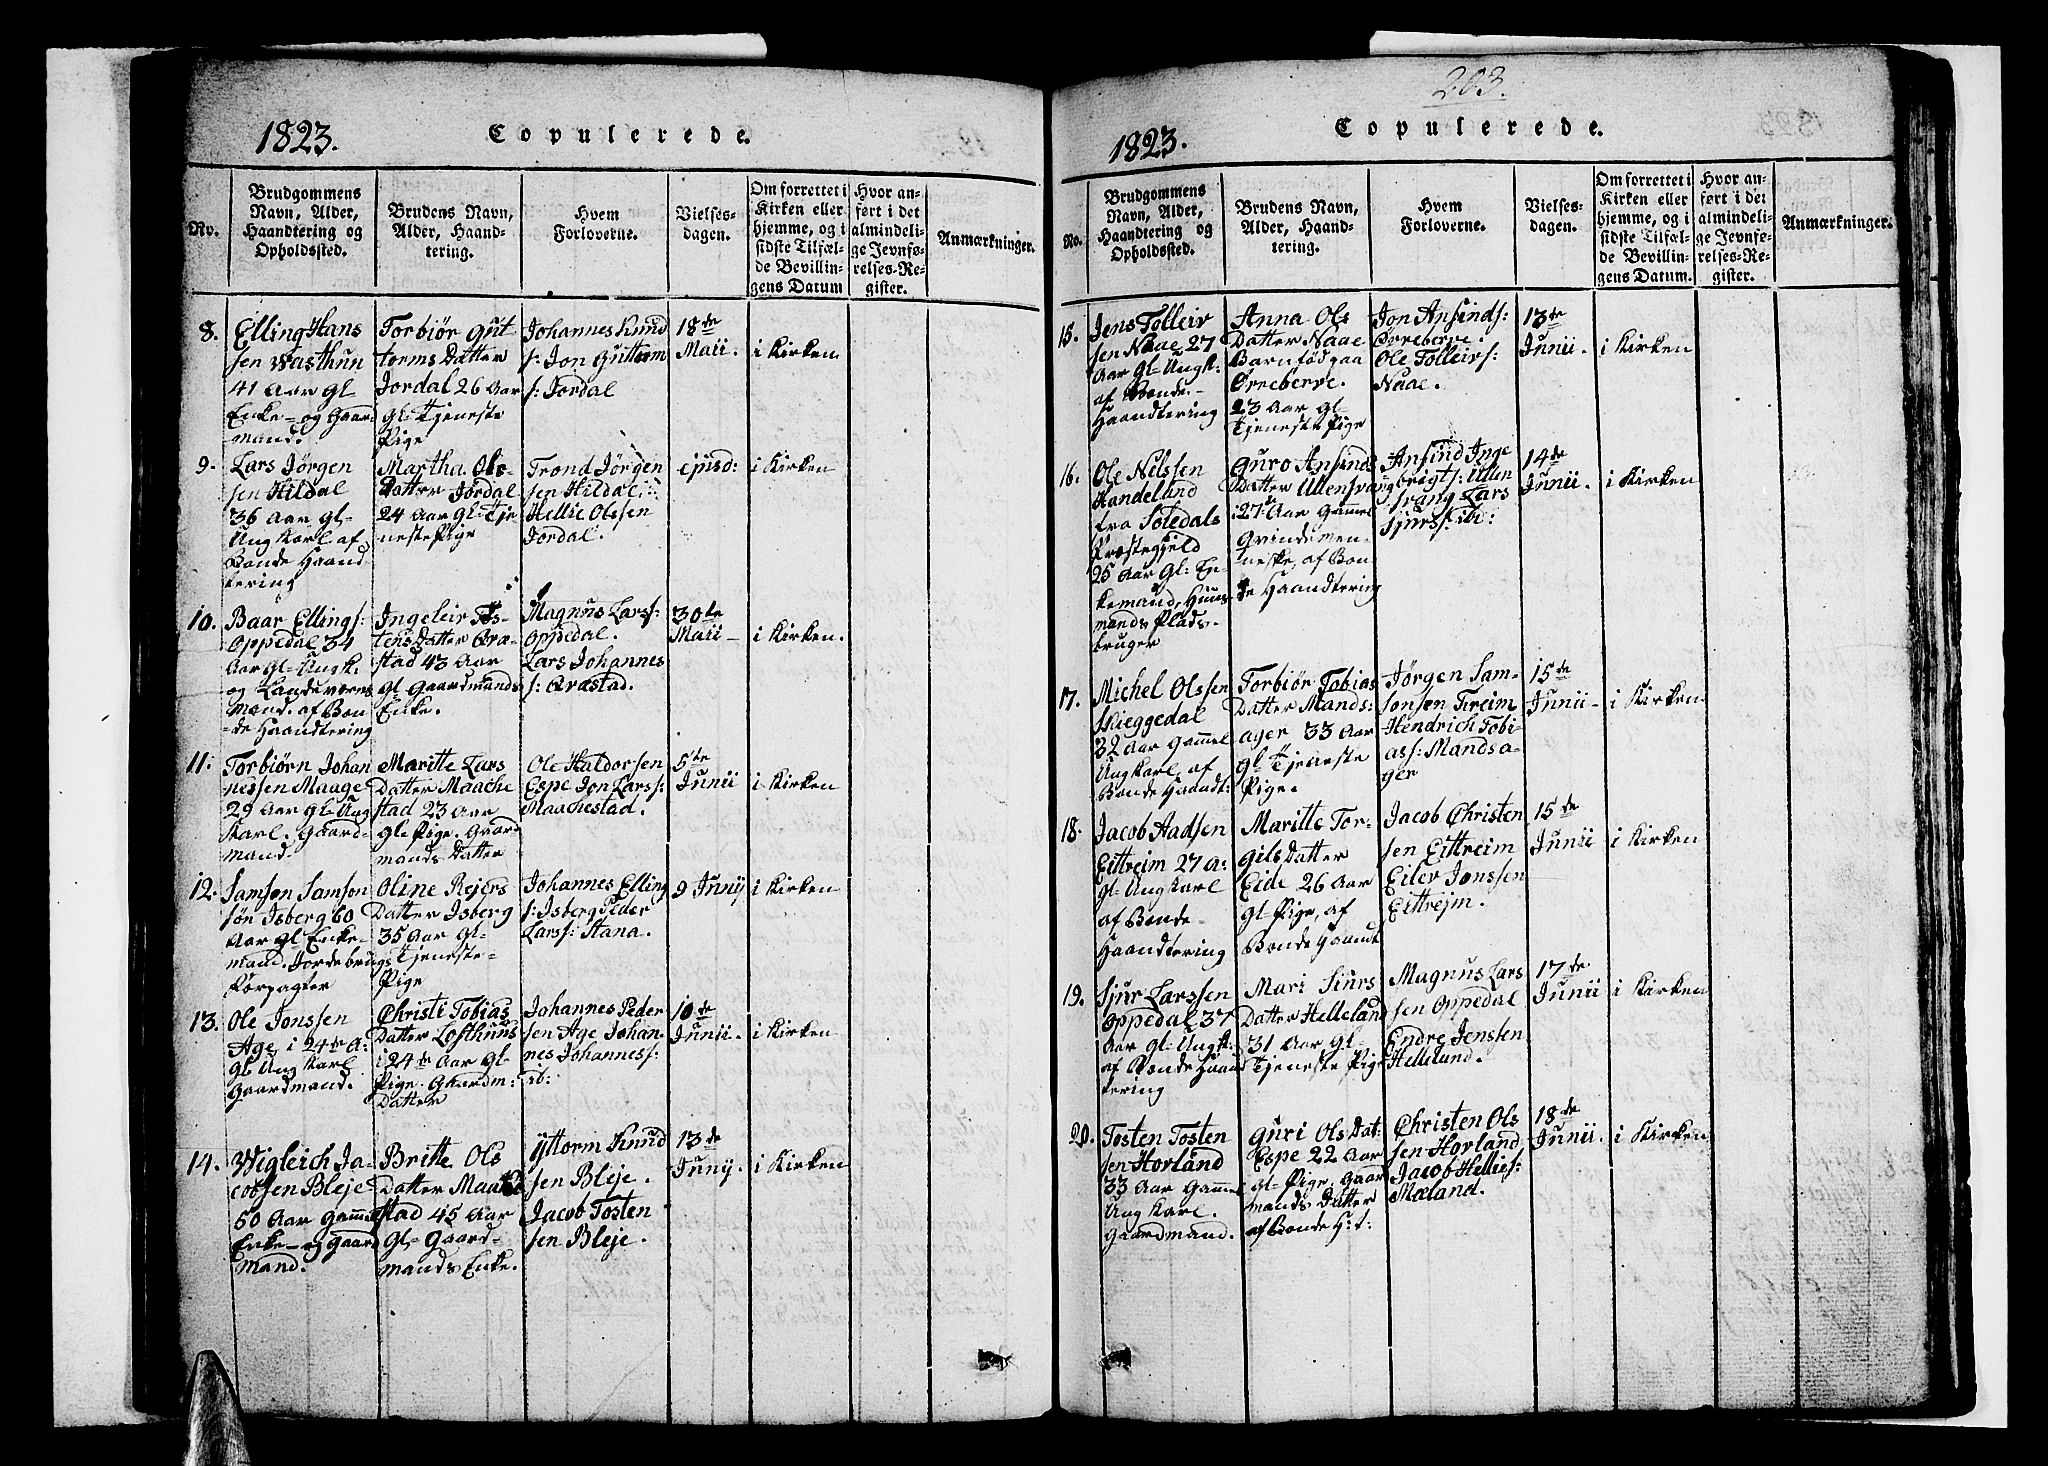 1823.
Copulerede.
No.
Brudgommens
Navn, Alder,
Haandtering og
Opholdssted.
Brudens Navn,
Alder, Haand-
tering.
Hvem
Forloverne.
Vielses-
dagen.
Om forrettet i
Kirken eller
hjemme, og i
sidste Tilfæl-
de Bevillin-
gens Datum
Hvor an-
ført i det
almindeli-
ge Jevnfø-
relses-Re-
gister.
Anmærkninger.
8.
Elling Hans
sen Wasthun
41 Aar Gl
Enke- og Gaard
mand.
Torbiør Gut
torms Datter
Jordal 26 Aar
Gl- Tjeneste
Pige
Johannes Knud
s: Jon Guttorm
s: Jordal
18de
Maii.
i Kirken
9.
Lars Jørgen
sen Hildal
36 Aar Gl-
Ung Karl af
Bonde Haand
tering
Martha Ols-
Datter Jordal
24 Aar Gl- Tje
neste Pige
Trond Jørgen
sen Hildal
Hellie Olssen
Jordal.
ejusd:
i Kirken
10.
Baar Ellings:
Oppedal 34
Aar Gl- Ungk.
og Landeværns
Mand. af Bon
de Haandtering
Ingeleir Tos-
tens Datter Qvæ-
stad 43 Aar
Gl Gaardmands
Enke.
Magnus Lars:
Oppedal.
Lars Johannes
s: Qvæstad.
30te
Maii-
i Kirken.
11.
Torbiørn Johan
nessen Maage
29 Aar Gl- Ung
Karl. Gaard-
mand.
Maritte Lars
Datter Maache
stad 23 Aar
Gl- Pige. Gaard
mands Datter
Ole Haldorsen
Espe Jon Larss:
Maachestad.
5te
Junii
i Kirken
12.
Samson Samson
søn Isberg 60
Aar Gl- Enke-
mand. Jordebrug
Korpagter
Oline Rejers
Datter Isberg
35 Aar Gl-
Tjeneste-
Pige
Johannes Elling
s: Isberg Peder
Larss: Hana.
9 Junij
i Kirken
13.
Ole Jonssen
Age i 24de A:
Gl- Ung Karl
Gaardmand.
Christi Tobias
Datter Lofthuus
i 24de Aar Gl-
Pige. Gaardm:
Datter
Johannes Peder
sen Age Johan
nes Johanness:
ib:
10de
Junii.
i Kirken
14.
Wigleich Ja-
cobsen Bleje
50 Aar Gammel
Enke- og Gaard
Mand.
Britte Ols
Datter Maake
stad 45 Aar
Gl- Gaard-
mands Enke.
Yttorm Knud
sen Bleje.
Jacob Tosten
sen Bleje.
13de
Juny.
i Kirken
203.
1823.
Copulerede.
No.
Brudgommens
Navn, Alder,
Haandtering og
Opholdssted.
Brudens Navn,
Alder, Haand-
tering.
Hvem
Forloverne.
Vielses-
dagen.
Om forrettet i
Kirken eller
hjemme, og i
sidste Tilfæl-
de Bevillin-
gens Datum.
Hvor an-
ført i det
almindeli-
ge Jevnfø-
relses-Re-
gister.
Anmærkninger.
15.
Jens Tolleiv
sen Naae 27
Aar Gl- Ungk:
af Bonde-
Haandtering
Anna Ols
Datter Naae
Barnfød paa
Orreberve.
23 Aar Gl-
Tjeneste Pige
Jon Ansinds:
Orreberve.
Ole Tolleivs:
Naae.
13de
Junii.
i Kirken
16.
Ole Nilssen
Handelund
fra Soledals
Præstegjeld
25 Aar Gl: En-
kemand, Huus-
mands Plads-
bruger
Guro Ansinds
Datter Ullensvang
27 Aar Gammel
Qvindemen-
neske, af Bon
de Haandtering
Ansind Inge
brigts: Ullen
svang Lars
Sjurs: ibi:
14de
Junii.
i Kirken
17.
Michel Olssen
Skieggedal
32 Aar Gammel
Ung Karl, af
Bonde Haandt:
Torbiør Tobias
Datter Mands:
ager 33 Aar
Gl- Tjeneste
Pige.
Jørgen Sam-
sonsen Freim
Hendrich Tobi-
ass: Mandsa-
ger
15de
Junii-
i Kirken
18.
Jacob Aadsen
Eittreim 27 A:
Gl- Ung Karl
af Bonde-
Haandtering
Maritte Tor-
gils Datter
Eide 26 Aar
Gl- Pige, af
Bonde Haandt
Jacob Christen
sen Eittreim
Eiler Jonssen
Eittrejm.
15de
Junii
i Kirken
19.
Sjur Larssen
Oppedal 37
Aar Gl- Ungk:
af Bonde Haand
tering
Mari Siurs
Datter Helleland
31 Aar Gl-
Tjeneste Pige
Magnus Lars
sen Oppedal
Endre Jenssen
Hellelund.
17de
Junii
i Kirken
20.
Tosten Tosten
sen Horland
33 Aar Gammel
Ung Karl.
Gaardmand.
Guri Ols Dat:
Espe 22 Aar
Gl- Pige, Gaar
mands Datter
af Bonde H:t:
Christen Ols
sen Horland
Jacob Hellies:
Mæland.
18de
Junii.
i Kirken